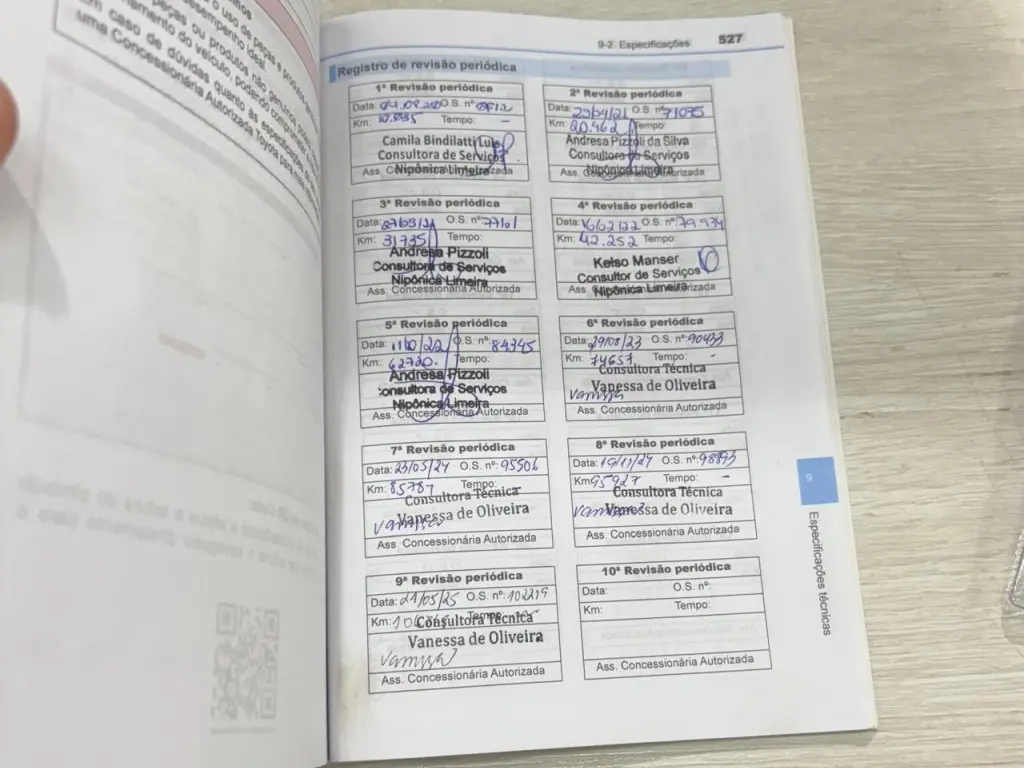 9-2. Especificações 527
Registro de revisão periódica
1ª Revisão periódica
Data: 04.08.20 O.S. nº
Km: Tempo:
Camila Bindilatti Luis
Consultora de Serviços
Nipônica Limeira
Ass. Concessionária Autorizada
2ª Revisão periódica
Data: 23/04/21 O.S. nº 71035
Km: 20.462 Tempo:
Andresa Pizzoli da Silva
Consultora de Serviços
Nipônica Limeira
Ass. Concessionária Autorizada
3ª Revisão periódica
Data: O.S. nº: 77161
Km: 31735 Tempo:
Andresa Pizzoli
Consultora de Serviços
Nipônica Limeira
Ass. Concessionária Autorizada
4ª Revisão periódica
Data: 16/02/22 O.S. nº: 79934
Km: 42.252 Tempo:
Kelso Manser
Consultor de Serviços
Nipônica Limeira
Ass. Concessionária Autorizada
5ª Revisão periódica
Data: 11/10/22 O.S. nº: 84345
Km: 62720. Tempo:
Andresa Pizzoli
Consultora de Serviços
Nipônica Limeira
Ass. Concessionária Autorizada
6ª Revisão periódica
Data: 29/08/23 O.S. nº: 90433
Km: 74657 Tempo: -
Consultora Técnica
Vanessa de Oliveira
Vanessa
Ass. Concessionária Autorizada
7ª Revisão periódica
Data: 23/05/24 O.S. nº: 95506
Km: 85787 Tempo: -
Consultora Técnica
Vanessa de Oliveira
Vanessa
Ass. Concessionária Autorizada
8ª Revisão periódica
Data: 19/11/24 O.S. nº: 98893
Km: 95927 Tempo: -
Consultora Técnica
Vanessa de Oliveira
Vanessa
Ass. Concessionária Autorizada
9ª Revisão periódica
Data: 21/05/25 O.S. nº: 102219
Km: Tempo:
Consultora Técnica
Vanessa de Oliveira
Vanessa
Ass. Concessionária Autorizada
10ª Revisão periódica
Data: O.S. nº:
Km: Tempo:
Ass. Concessionária Autorizada
9
Especificações técnicas
o uso de peças e produtos
desempenho ideal
peças ou produtos não genuínos
namento do veículo, podendo comprometer
em caso de dúvidas quanto às especificações
uma Concessionária Autorizada Toyota para